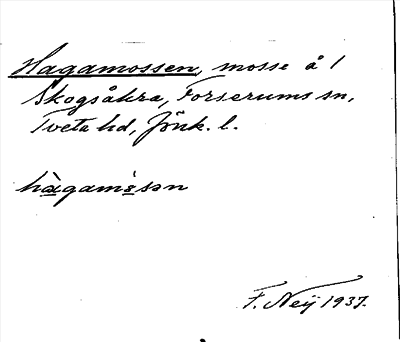 Hagamossen, mosse å 1
Skogsåkra, Forserums sn,
Tveta hd, Jönk. l.
hàgamòsən
F. Neij 1937.